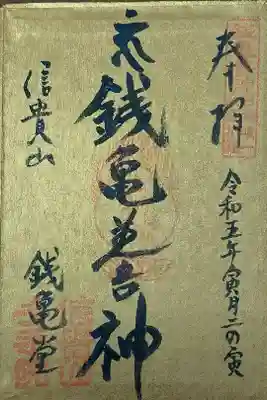 奉拝
令和五年寅月二の寅
銭亀善神
信貴山
銭亀堂